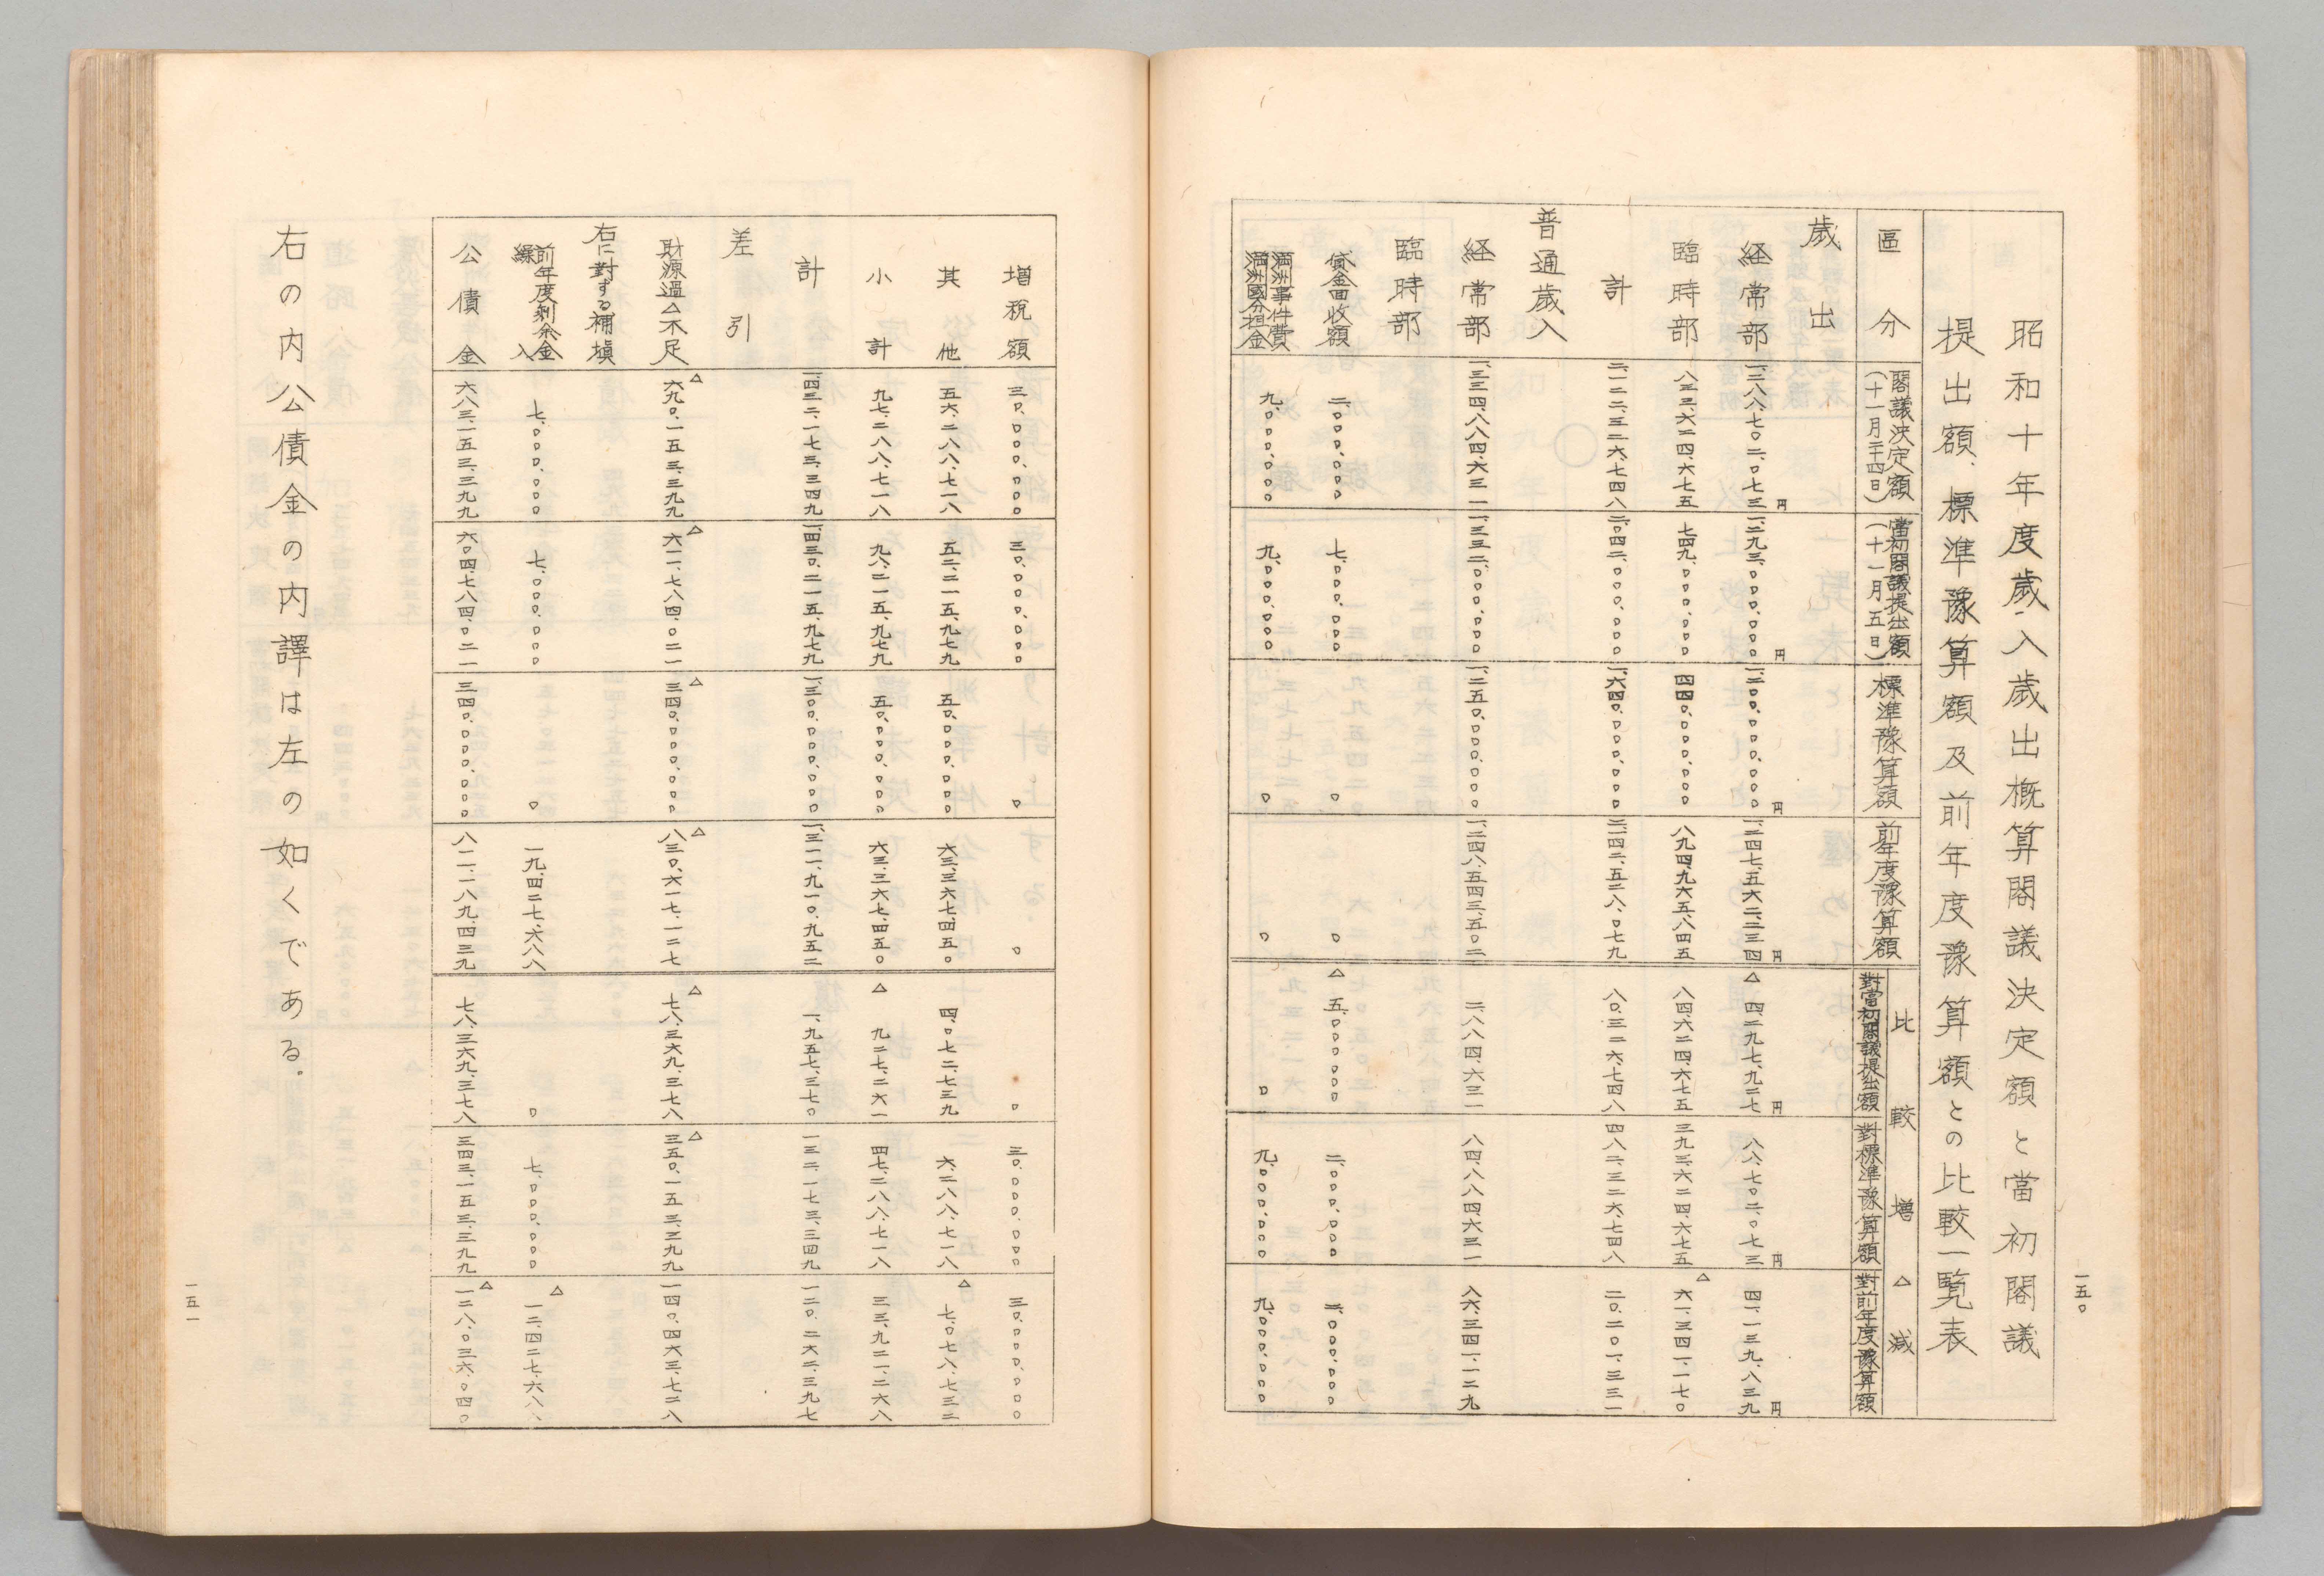 昭和十年度歳入歳出概算閣議決定額と當初閣議
提出額、標準豫算額及前年度豫算額との比較一覽表
區分
閣議決定額
(十一月二十四日)
當初閣議提出額
(十一月五日)
標準豫算額
前年度豫算額
比較增△減
對當初閣議提出額
對標準豫算額
對前年度豫算額
歳出
経常部 一、二八八、七〇二、〇七三円 一、二九三、〇〇〇、〇〇〇円 一、二〇〇、〇〇〇、〇〇〇円 一、二四七、五六二、二三四円 △四、二九七、九二七円 八八、七〇二、〇七三円 四一、一三九、八三九円
臨時部 八三三、六二四、六七五 七四九、〇〇〇、〇〇〇 四四〇、〇〇〇、〇〇〇 八九四、九六五、八四五 八四、六二四、六七五 三九三、六二四、六七五 △六一、三四一、一七〇
計 二、一二二、三二六、七四八 二、〇四二、〇〇〇、〇〇〇 一、六四〇、〇〇〇、〇〇〇 二、一四二、五二八、〇七九 八〇、三二六、七四八 四八二、三二六、七四八 二〇、二〇一、三三一
普通歳入
経常部 一、三三四、八八四、六三一 一、三三二、〇〇〇、〇〇〇 一、二五〇、〇〇〇、〇〇〇 一、二四八、五四三、五〇二 二、八八四、六三一 八四、八八四、六三一 八六、三四一、一二九
臨時部
貸金回收額 二、〇〇〇、〇〇〇 七、〇〇〇、〇〇〇 〇 〇 △五、〇〇〇、〇〇〇 二、〇〇〇、〇〇〇 二、〇〇〇、〇〇〇
満洲事件費
満洲國分担金 九、〇〇〇、〇〇〇 九、〇〇〇、〇〇〇 〇 〇 〇 九、〇〇〇、〇〇〇 九、〇〇〇、〇〇〇
一五〇
増税額 三〇、〇〇〇、〇〇〇 三〇、〇〇〇、〇〇〇 〇 〇 〇 三〇、〇〇〇、〇〇〇 三〇、〇〇〇、〇〇〇
其他 五六、二八八、七一八 五二、二一五、九七九 五〇、〇〇〇、〇〇〇 六三、三六七、四五〇 四、〇七二、七三九 六、二八八、七一八 △七、〇七八、七三二
小計 九七、二八八、七一八 九八、二一五、九七九 五〇、〇〇〇、〇〇〇 六三、三六七、四五〇 △九二七、二六一 四七、二八八、七一八 三三、九二一、二六八
計 一、四三二、一七三、三四九 一、四三〇、二一五、九七九 一、三〇〇、〇〇〇、〇〇〇 一、三一一、九一〇、九五二 一、九五七、三七〇 一三二、一七三、三四九 一二〇、二六二、三九七
差引
財源過△不足 △六九〇、一五三、三九九 △六一一、七八四、〇二一 △三四〇、〇〇〇、〇〇〇 △八三〇、六一七、一二七 △七八、三六九、三七八 △三五〇、一五三、三九九 一四〇、四六三、七二八
右に對する補塡
前年度剰余金
繰入 七、〇〇〇、〇〇〇 七、〇〇〇、〇〇〇 〇 一九、四二七、六八八 〇 七、〇〇〇、〇〇〇 △一二、四二七、六八八
公債金 六八三、一五三、三九九 六〇四、七八四、〇二一 三四〇、〇〇〇、〇〇〇 八一一、一八九、四三九 七八、三六九、三七八 三四三、一五三、三九九 △一二八、〇三六、〇四〇
右の内公債金の内譯は左の如くである。
一五一